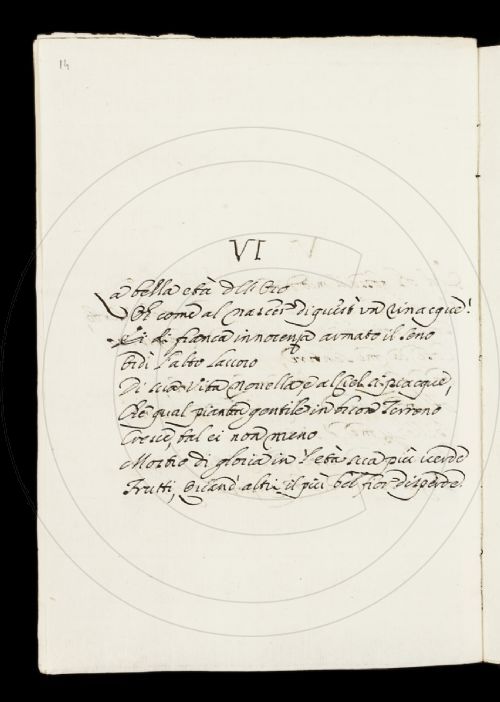 14
VI
La bella età dell'Oro
Oh come al nascer di quest' un rinacque!
Ei di bianca innocenza armato il seno
Ordì l'alto lavoro
Di sua vita novella e al Ciel si piacque,
Che qual pianta gentile in buon Terreno
Cresce, tal ei non meno
Mostrò di gloria in l'età sua più verde
Frutti, quand' altri il più bel fior disperde